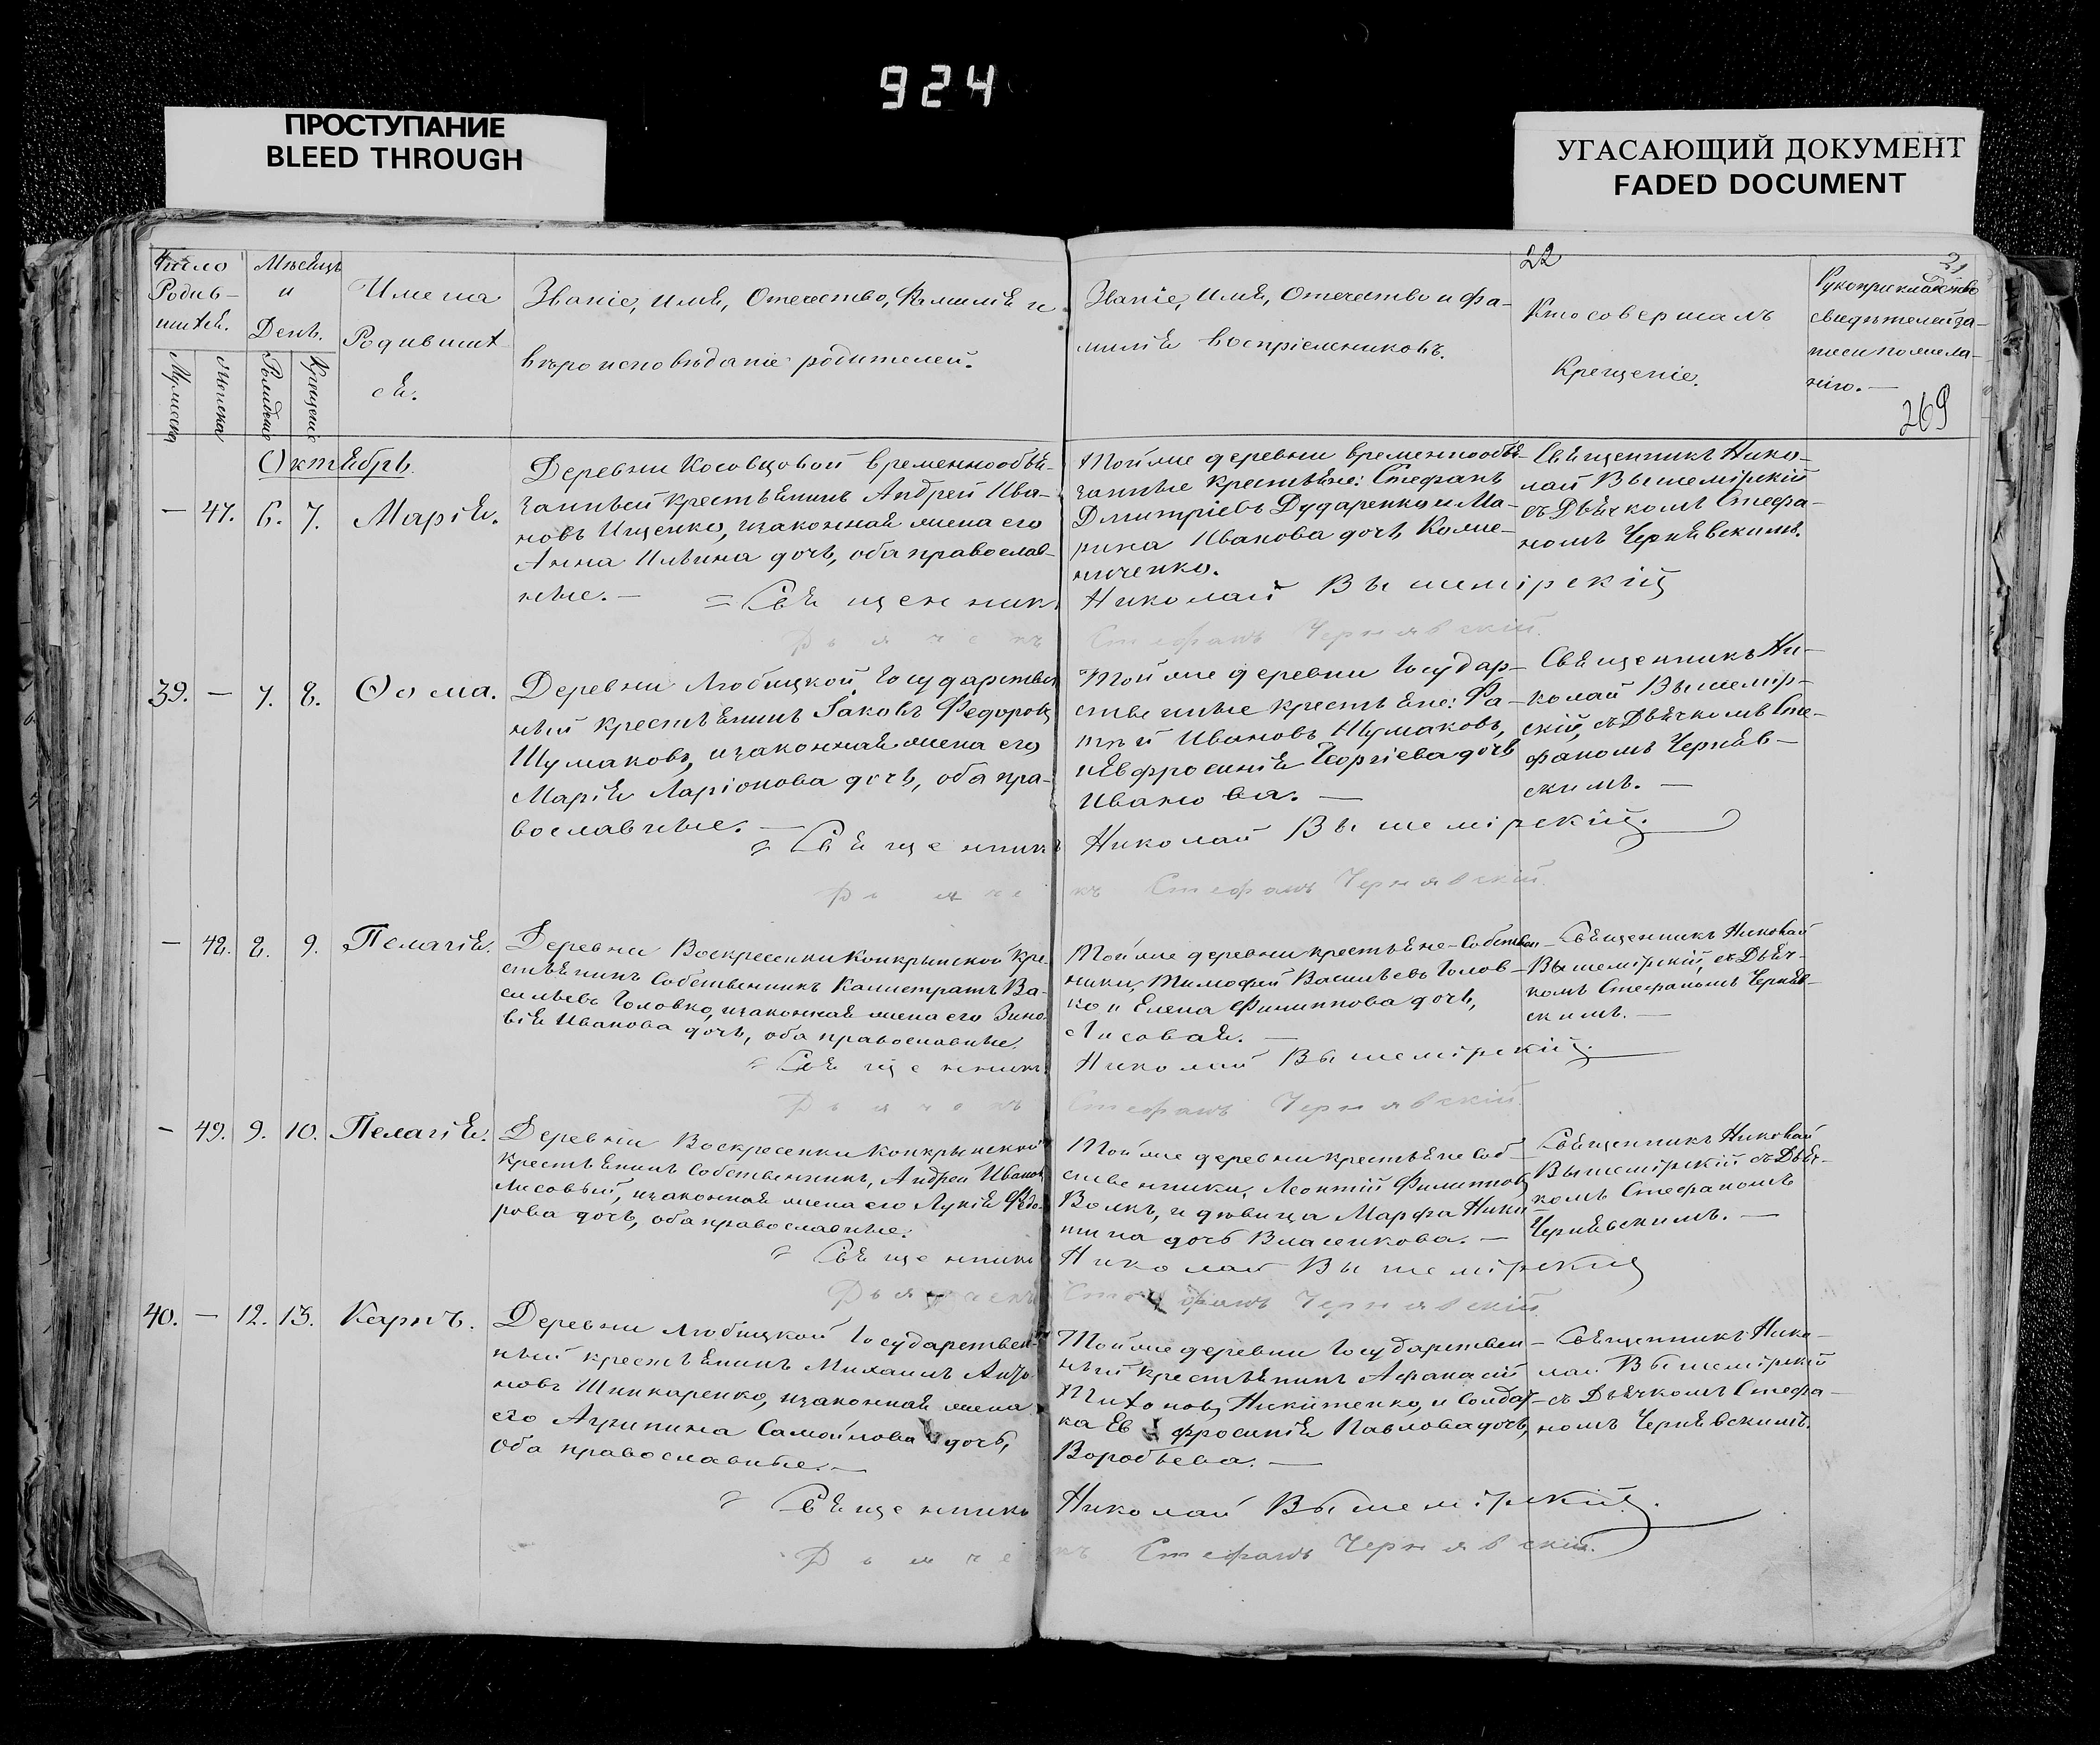 924
ПРОСТУПАНИЕ
BLEED THROUGH
УГАСАЮЩИЙ ДОКУМЕНТ
FADED DOCUMENT
Число
Родив-
шихся.
Мужеска
Женска
Мѣсяцъ
и
День.
Рожденіе
Крещеніе
Имена
Родивших
ся.
Званіе, имя, Отечество, Фамилія и
вѣроисповѣданіе родителей.
Званіе, имя, отечество и фа-
милія воспріемниковъ.
22
Кто совершалъ
Крещеніе.
21
Рукоприкладство
свидѣтелей за-
писи по жела-
нію. —
269
Октябрь.
— 47. 6. 7. Марія.
Деревни Косовцовой временнообя-
занный крестьянинъ Андрей Ива-
новъ Ищенко, изаконная жена его
Анна Ильина дочь, оба православ-
ные. —
Той же деревни временнообя-
занные крестьяне: Стефанъ
Дмитріевъ Дударенко и Ма-
рина Иванова дочь Коже-
ниченко.
Священникъ Нико-
лай Вышемірскій
съ Дьячкомъ Стефа-
номъ Чернявскимъ.
= Священникъ Николай Вышемірскій
Дьячекъ Стефанъ Чернявскій.
39. — 7. 8. Ѳома.
Деревни Любицкой Государствен
ный крестьянинъ Іаковъ Федоровъ
Шумаковъ, изаконная жена его
Марія Ларіонова дочь, оба пра-
вославные. —
Той же деревни Государ-
ственные крестьяне: Фа-
тѣй Ивановъ Шумаковъ,
и Евфросинія Георгіева дочь
Иванова. —
Священникъ Ни-
колай Вышемір-
скій, съ Дьячкомъ Сте-
фаномъ Черняв-
скимъ. —
Священникъ Николай Вышемірскій.
Дьячекъ Стефанъ Чернявскій.
— 48. 8. 9. Пелагія.
Деревни Воскресенки Конкрынской кре-
стьянинъ Собственникъ Калистратъ Ва-
сильевъ Головко, изаконная жена его Зино-
вія Иванова дочь, оба православные.
Той же деревни крестьяне-Собствен-
ники, Тимофей Васильевъ Голов-
ко и Елена Филиппова дочь,
Лисовая. —
Священникъ Николай
Вышемірскій, съ Дьяч-
комъ Стефаномъ Черняв-
скимъ. —
Священникъ Николай Вышемірскій.
Дьячекъ Стефанъ Чернявскій.
— 49. 9. 10. Пелагія.
Деревни Воскресенки Конкрынской
Крестьянинъ Собственникъ, Андрей Ивановъ
Лисовый, изаконная жена его Лукія Ѳедо-
рова дочь, оба православные.
Той же деревни крестьяне Соб-
ственники, Леонтій Филипповъ
Волкъ, и дѣвица Марфа Ники-
тина дочь Власенкова. —
Священникъ Николай
Вышемірскій съ Дьяч-
комъ Стефаномъ
Чернявскимъ. —
Священникъ Николай Вышемірскій
Дьячекъ Стефанъ Чернявскій
40. — 12. 13. Карпъ.
Деревни Любицкой Государствен-
ный крестьянинъ Михаилъ Анто-
новъ Шинкаренко, изаконная жена
его Агрипина Самойлова дочь,
оба православные. —
Той же деревни Государствен-
ный крестьянинъ Афанасій
Тихоновъ Никитенко, и Солдат-
ка Евфросинія Павлова дочь,
Воробьева. —
Священникъ Нико-
лай Вышемірскій
съ Дьячкомъ Стефа-
номъ Чернявскимъ.
Священникъ Николай Вышемірскій.
Дьячекъ Стефанъ Чернявскій.